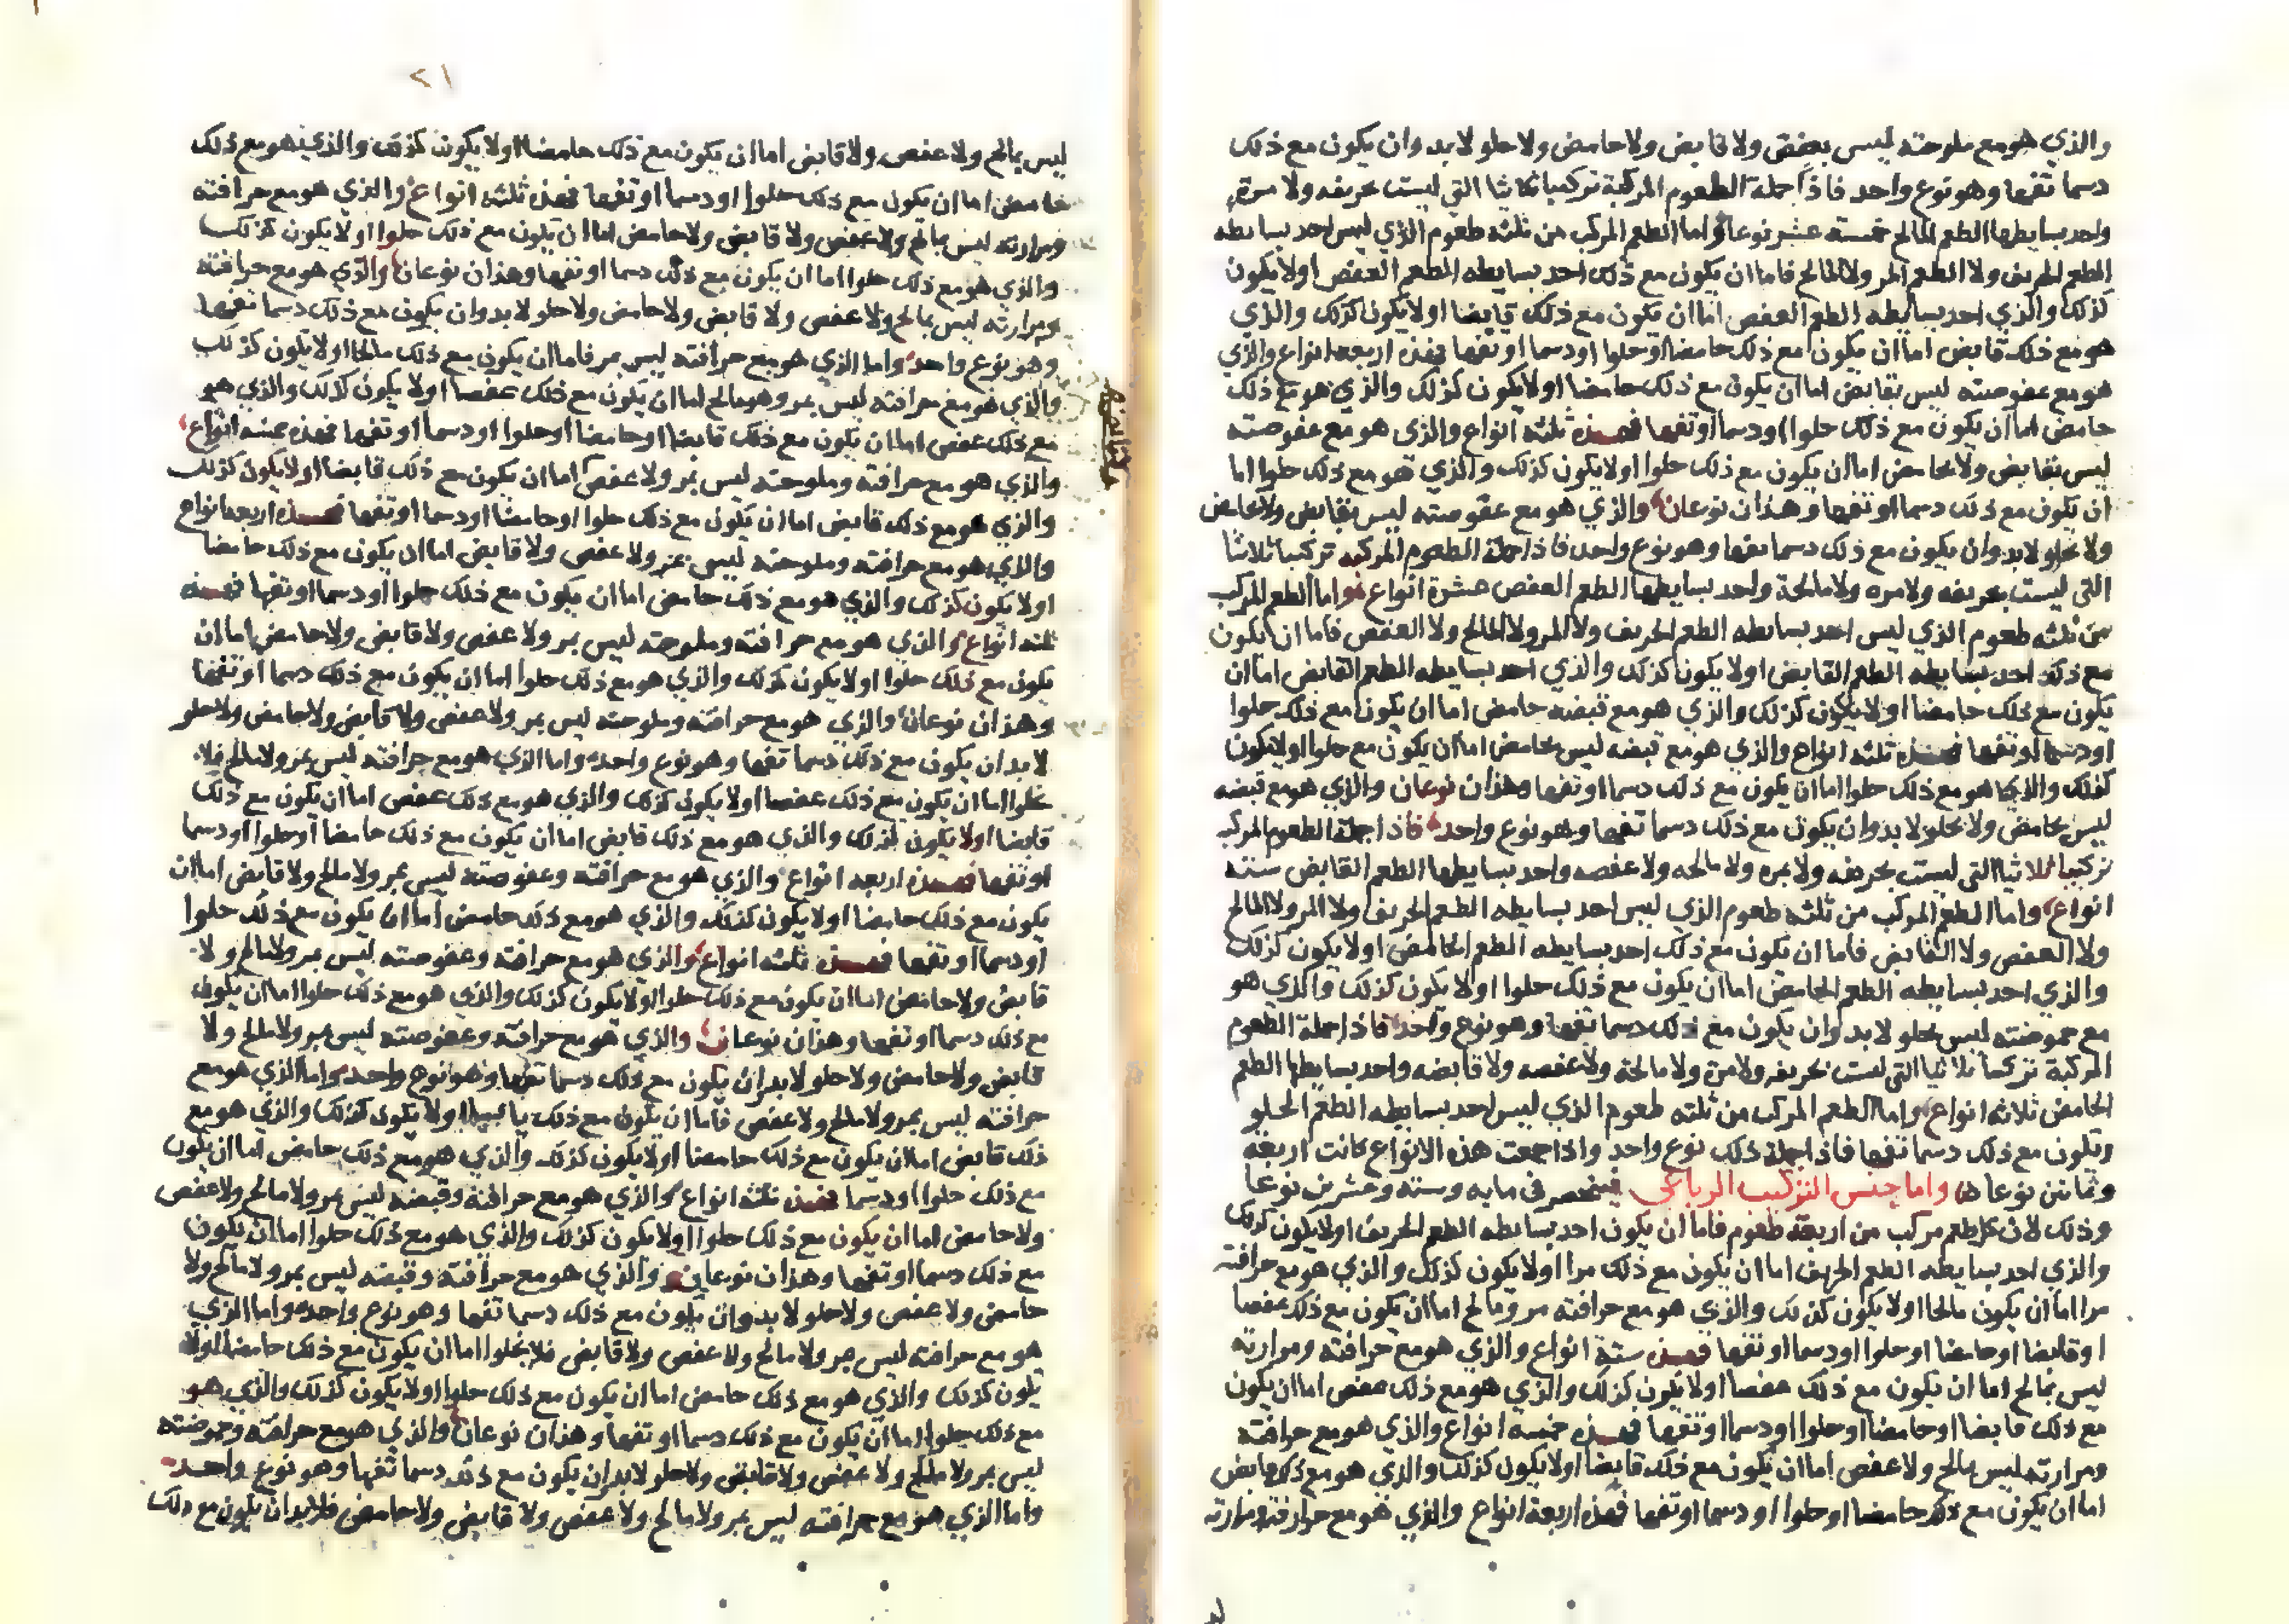 والذي هو مع ملوحته ليس بعفص ولا قابض ولا حامض ولا حلو لا بد وان يكون مع ذلك
دسما تفها وهو نوع واحد فاذا جملة الطعوم المركبة تركيبا ثلاثيا التي ليست بحريفه ولا مرة
واحد بسايطها الطعم المالح خمسة عشر نوعا واما الطعم المركب من ثلثه طعوم الذي ليس احد بسايطه
الطعم الحريف ولا الطعم المر ولا المالح فاما ان يكون مع ذلك احد بسايطه الطعم العفص اولا يكون
كذلك والذي احد بسايطه الطعم العفص اما ان يكون مع ذلك قابضا اولا يكون كذلك والذي
هو مع ذلك قابض اما ان يكون مع ذلك حامضا او حلوا او دسما او تفها فهذه اربعه انواع والذي
هو مع عفوصته ليس بقابض اما ان يكون مع ذلك حامضا اولا يكون كذلك والذي هو مع ذلك
حامض اما ان يكون مع ذلك حلوا او دسما او تفها فهذه ثلثه انواع والذي هو مع عفوصته
ليس بقابض ولا بحامض اما ان يكون مع ذلك حلوا اولا يكون كذلك والذي هو مع ذلك حلوا اما
ان يكون مع ذلك دسما او تفها وهذان نوعان والذي هو مع عفوصته ليس بقابض ولا بحامض
ولا بحلو لا بد وان يكون مع ذلك دسما تفها وهو نوع واحد فاذا جملة الطعوم المركبه تركيبا ثلاثيا
التي ليست بحريفه ولا مره ولا مالحة واحد بسايطها الطعم العفص عشرة انواع واما الطعم المركب
من ثلثه طعوم الذي ليس احد بسايطه الطعم الحريف ولا المر ولا المالح ولا العفص فاما ان يكون
مع ذلك احد بسايطه الطعم القابض اولا يكون كذلك والذي احد بسايطه الطعم القابض اما ان
يكون مع ذلك حامضا اولا يكون كذلك والذي هو مع قبضه حامض اما ان يكون مع ذلك حلوا
او دسما او تفها فهذه ثلثه انواع والذي هو مع قبضه ليس بحامض اما ان يكون مع حلوا اولا يكون
كذلك والذي هو مع ذلك حلوا اما ان يكون مع ذلك دسما او تفها وهذان نوعان والذي هو مع قبضه
ليس بحامض ولا بحلو لا بد وان يكون مع ذلك دسما تفها وهو نوع واحد فاذا جملة الطعوم المركبه
تركيبا ثلاثيا التي ليست بحريفه ولا بمره ولا مالحه ولا عفصه واحد بسايطها الطعم القابض سته
انواع واما الطعم المركب من ثلثه طعوم الذي ليس احد بسايطه الطعم الحريف ولا المر ولا المالح
ولا العفص ولا القابض فاما ان يكون مع ذلك احد بسايطه الطعم الحامض اولا يكون كذلك
والذي احد بسايطه الطعم الحامض اما ان يكون مع ذلك حلوا اولا يكون كذلك والذي هو
مع حموضته ليس بحلو لا بد وان يكون مع ذلك دسما تفها وهو نوع واحد فاذا جملة الطعوم
المركبة تركيبا ثلاثيا التي ليست بحريفه ولا مرة ولا مالحة ولا عفصه ولا قابضه واحد بسايطها الطعم
الحامض ثلاثه انواع واما الطعم المركب من ثلثه طعوم الذي ليس احد بسايطه الطعم الحلو
ويكون مع ذلك دسما تفها فاذا جملة ذلك نوع واحد واذا جمعت هذه الانواع كانت اربعة
وثمانين نوعا واما جنس التركيب الرباعي فينحصر في مايه وسته وعشرين نوعا
وذلك لان كل طعم مركب من اربعة طعوم فاما ان يكون احد بسايطه الطعم الحريف اولا يكون كذلك
والذي احد بسايطه الطعم الحريف اما ان يكون مع ذلك مرا اولا يكون كذلك والذي هو مع حرافته
مرا اما ان يكون مالحا اولا يكون كذلك والذي هو مع حرافته مر ومالح اما ان يكون مع ذلك عفصا
او قابضا او حامضا او حلوا او دسما او تفها فهذه ستة انواع والذي هو مع حرافته ومرارته
ليس بمالح اما ان يكون مع ذلك عفصا اولا يكون كذلك والذي هو مع ذلك عفص اما ان يكون
مع ذلك قابضا او حامضا او حلوا او دسما او تفها فهذه خمسه انواع والذي هو مع حرافته
ومرارته ليس بمالح ولا عفص اما ان يكون مع ذلك قابضا اولا يكون كذلك والذي هو مع ذلك قابض
اما ان يكون مع ذلك حامضا او حلوا او دسما او تفها فهذه اربعة انواع والذي هو مع حرافته ومرارته
٢١
ليس بمالح ولا عفص ولا قابض اما ان يكون مع ذلك حامضا اولا يكون كذلك والذي هو مع ذلك
حامض اما ان يكون مع ذلك حلوا او دسما او تفها فهذه ثلثه انواع والذي هو مع حرافته
ومرارته ليس بمالح ولا عفص ولا قابض ولا حامض اما ان يكون مع ذلك حلوا اولا يكون كذلك
والذي هو مع ذلك حلوا اما ان يكون مع ذلك دسما او تفها وهذان نوعان والذي هو مع حرافته
ومرارته ليس بمالح ولا عفص ولا قابض ولا حامض ولا حلو لا بد وان يكون مع ذلك دسما تفها
وهو نوع واحد واما الذي هو مع حرافته ليس بمر فاما ان يكون مع ذلك مالحا اولا يكون كذلك
والذي هو مع حرافته ليس بمر وهو مالح اما ان يكون مع ذلك عفصا اولا يكون كذلك والذي هو
مع ذلك عفص اما ان يكون مع ذلك قابضا او حامضا او حلوا او دسما او تفها فهذه خمسه انواع
والذي هو مع حرافته وملوحته ليس بمر ولا عفص اما ان يكون مع ذلك قابضا اولا يكون كذلك
والذي هو مع ذلك قابض اما ان يكون مع ذلك حلوا او حامضا او دسما او تفها فهذه اربعه انواع
والذي هو مع حرافته وملوحته ليس بمر ولا عفص ولا قابض اما ان يكون مع ذلك حامضا
اولا يكون كذلك والذي هو مع ذلك حامض اما ان يكون مع ذلك حلوا او دسما او تفها فهذه
ثلثه انواع والذي هو مع حرافته وملوحته ليس بمر ولا عفص ولا قابض ولا حامض اما ان
يكون مع ذلك حلوا اولا يكون كذلك والذي هو مع ذلك حلوا اما ان يكون مع ذلك دسما او تفها
وهذان نوعان والذي هو مع حرافته وملوحته ليس بمر ولا عفص ولا قابض ولا حامض ولا حلو
لا بد ان يكون مع ذلك دسما تفها وهو نوع واحد واما الذي هو مع حرافته ليس بمر ولا مالح فلا
يخلوا اما ان يكون مع ذلك عفصا اولا يكون كذلك والذي هو مع ذلك عفص اما ان يكون مع ذلك
قابضا اولا يكون كذلك والذي هو مع ذلك قابض اما ان يكون مع ذلك حامضا او حلوا او دسما
او تفها فهذه اربعه انواع والذي هو مع حرافته وعفوصته ليس بمر ولا مالح ولا قابض اما ان
يكون مع ذلك حامضا اولا يكون كذلك والذي هو مع ذلك حامض اما ان يكون مع ذلك حلوا
او دسما او تفها فهذه ثلثه انواع والذي هو مع حرافته وعفوصته ليس بمر ولا مالح ولا
قابض ولا حامض اما ان يكون مع ذلك حلوا اولا يكون كذلك والذي هو مع ذلك حلوا اما ان يكون
مع ذلك دسما او تفها وهذان نوعان والذي هو مع حرافته وعفوصته ليس بمر ولا مالح ولا
قابض ولا حامض ولا حلو لا بد ان يكون مع ذلك دسما تفها وهو نوع واحد واما الذي هو مع
حرافته ليس بمر ولا مالح ولا عفص فاما ان يكون مع ذلك اولا يكون كذلك والذي هو مع
ذلك قابض اما ان يكون مع ذلك حامضا اولا يكون كذلك والذي هو مع ذلك حامض اما ان يكون
مع ذلك حلوا او دسما فهذه ثلثه انواع والذي هو مع حرافته وقبضه ليس بمر ولا مالح ولا عفص
ولا حامض اما ان يكون مع ذلك حلوا اولا يكون كذلك والذي هو مع ذلك حلوا اما ان يكون
مع ذلك دسما او تفها وهذان نوعان والذي هو مع حرافته وقبضه ليس بمر ولا مالح ولا
حامض ولا عفص ولا حلو لا بد وان يكون مع ذلك دسما تفها وهو نوع واحد واما الذي
هو مع حرافته ليس بمر ولا مالح ولا عفص ولا قابض فلا يخلوا اما ان يكون مع ذلك حامضا اولا
يكون كذلك والذي هو مع ذلك حامض اما ان يكون مع ذلك حلوا اولا يكون كذلك والذي هو
مع ذلك حلوا اما ان يكون مع ذلك دسما او تفها وهذان نوعان والذي هو مع حرافته وحموضته
ليس بمر ولا مالح ولا عفص ولا قابض ولا حلو لا بد ان يكون مع ذلك دسما تفها وهو نوع واحد
واما الذي هو مع حرافته ليس بمر ولا مالح ولا عفص ولا قابض ولا حامض فلا بد ان يكون مع ذلك